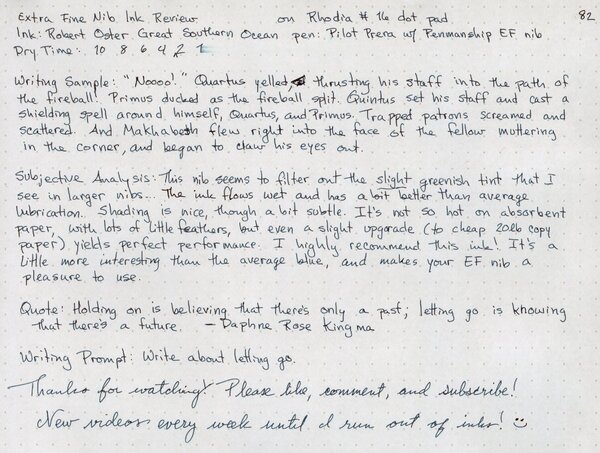 Extra Fine Nib Ink Review on Rhodia #16 dot pad 82
Ink: Robert Oster Great Southern Ocean pen: Pilot Prera w/ Penmanship EF nib
Dry Time: 10 8 6 4 2 1
Writing Sample: "Noooo!" Quartus yelled, thrusting his staff into the path of
the fireball. Primus ducked as the fireball split. Quintus set his staff and cast a
shielding spell around himself, Quartus, and Primus. Trapped patrons screamed and
scattered. And Makhabesh flew right into the face of the fellow muttering
in the corner, and began to claw his eyes out.
Subjective Analysis: This nib seems to filter out the slight greenish tint that I
see in larger nibs... The ink flows wet and has a bit better than average
lubrication. Shading is nice, though a bit subtle. It's not so hot on absorbent
paper, with lots of little feathers, but even a slight upgrade (to cheap 20lb copy
paper) yields perfect performance. I highly recommend this ink! It's a
little more interesting than the average blue, and makes your EF nib a
pleasure to use.
Quote: Holding on is believing that there's only a past; letting go is knowing
that there's a future. - Daphne Rose Kingma
Writing Prompt: Write about letting go.
Thanks for watching! Please like, comment, and subscribe!
New videos every week until I run out of inks!